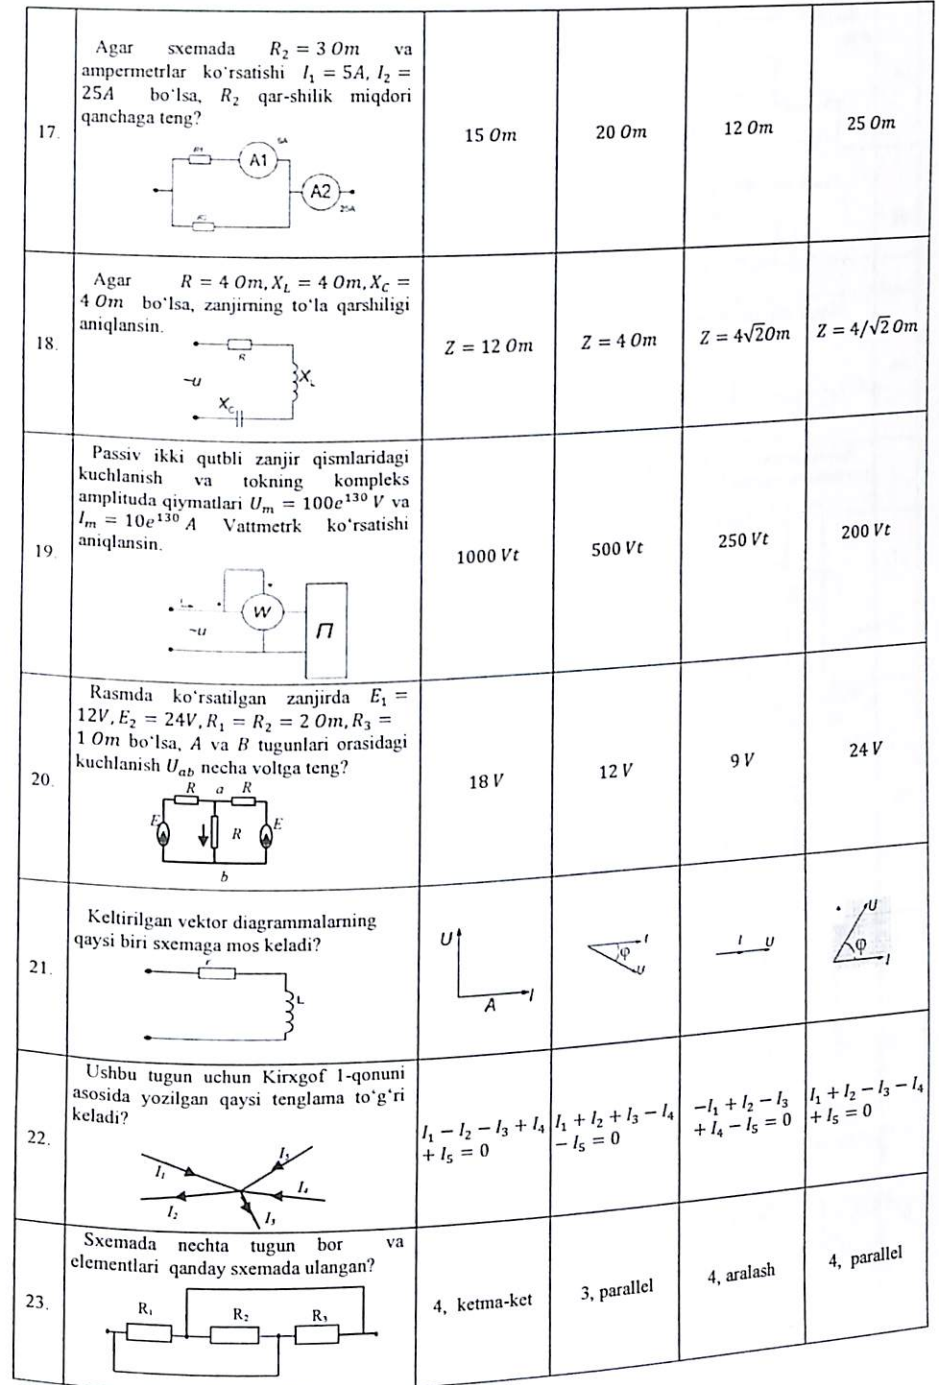 17.
Agar sxemada R₂ = 3 Om va
ampermetrlar ko‘rsatishi I₁ = 5A, I₂ =
25A bo‘lsa, R₂ qar-shilik miqdori
qanchaga teng?
5A
A1
A2
25A
15 Om
20 Om
12 Om
25 Om
18.
Agar R = 4 Om, X_L = 4 Om, X_C =
4 Om bo‘lsa, zanjirning to‘la qarshiligi
aniqlansin.
R
~u
X_L
X_C
Z = 12 Om
Z = 4 Om
Z = 4√2Om
Z = 4/√2 Om
19.
Passiv ikki qutbli zanjir qismlaridagi
kuchlanish va tokning kompleks
amplituda qiymatlari U_m = 100e¹³⁰ V va
I_m = 10e¹³⁰ A Vattmetrk ko‘rsatishi
aniqlansin.
W
~u
П
1000 Vt
500 Vt
250 Vt
200 Vt
20.
Rasmda ko‘rsatilgan zanjirda E₁ =
12V, E₂ = 24V, R₁ = R₂ = 2 Om, R₃ =
1 Om bo‘lsa, A va B tugunlari orasidagi
kuchlanish U_ab necha voltga teng?
R a R
E R E
b
18 V
12 V
9 V
24 V
21.
Keltirilgan vektor diagrammalarning
qaysi biri sxemaga mos keladi?
r
L
U
A I
I
φ
U
I U
U
φ
I
22.
Ushbu tugun uchun Kirxgof 1-qonuni
asosida yozilgan qaysi tenglama to‘g‘ri
keladi?
I₁
I₅
I₄
I₂
I₃
I₁ − I₂ − I₃ + I₄
+ I₅ = 0
I₁ + I₂ + I₃ − I₄
− I₅ = 0
−I₁ + I₂ − I₃
+ I₄ − I₅ = 0
I₁ + I₂ − I₃ − I₄
+ I₅ = 0
23.
Sxemada nechta tugun bor va
elementlari qanday sxemada ulangan?
R₁
R₂
R₃
4, ketma-ket
3, parallel
4, aralash
4, parallel